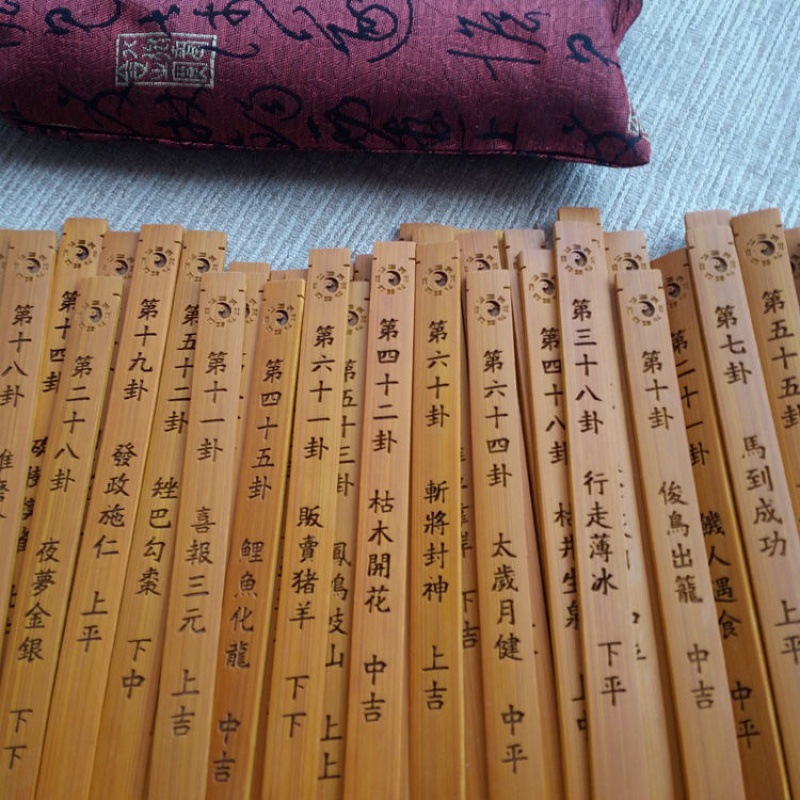 第十八卦
第十四卦
第二十八卦 夜夢金銀 下下
第十九卦 發政施仁 上平
第五十二卦 矬巴勾棗 下中
第十一卦 喜報三元 上吉
第四十五卦 鯉魚化龍 中吉
第六十一卦 販賣猪羊 下下
第五十三卦 鳳鳴岐山 上上
第四十二卦 枯木開花 中吉
第六十卦 斬將封神 上吉
下吉
第六十四卦 太歲月健 中平
第四十八卦 枯井生泉 上中
第三十八卦 行走薄冰 下平
第十卦 俊鳥出籠 中吉
第二十一卦 饑人遇食 中平
第七卦 馬到成功 上平
第五十五卦